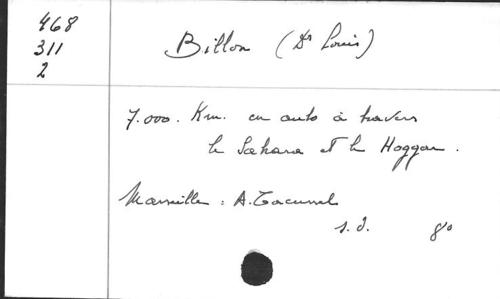 468
311
2
Billon (Dr Louis)
7.000. Km. en auto à travers
le Sahara et le Hoggar.
Marseille : A. Tacussel
s. d. 8°